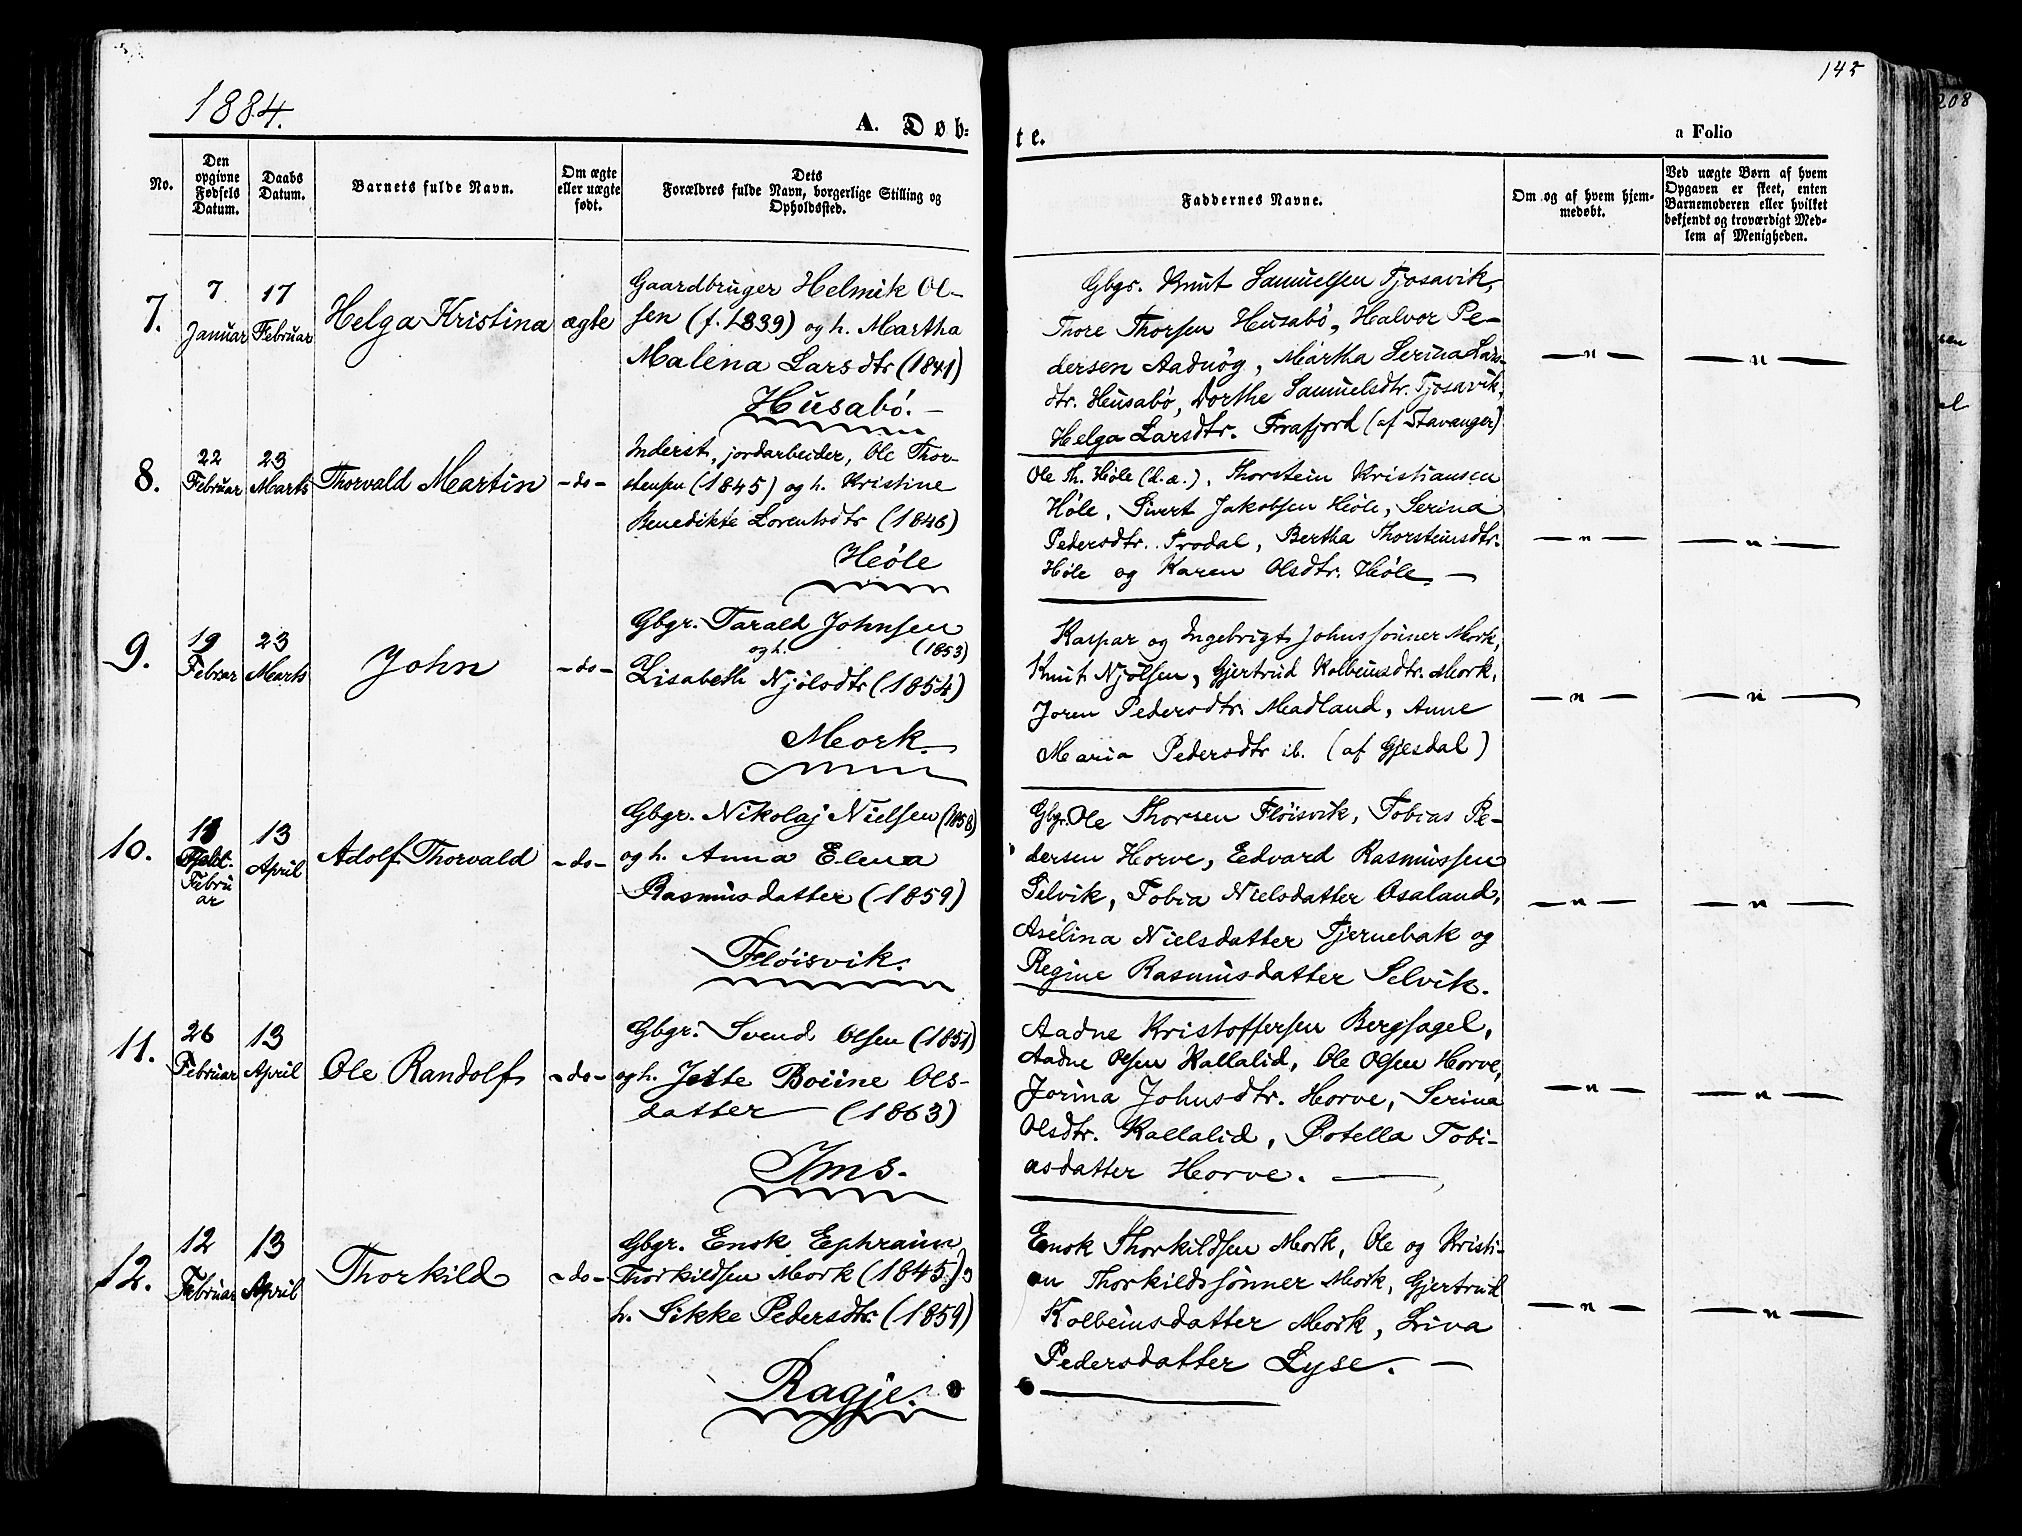 1884.
A. Døb-
te.
a Folio
145
208
No.
Den opgivne Fødsels Datum.
Daabs Datum.
Barnets fulde Navn.
Om ægte eller uægte født.
Dets Forældres fulde Navn, borgerlige Stilling og Opholdssted.
Faddernes Navne.
Om og af hvem hjemmedøbt.
Ved uægte Børn af hvem Opgaven er skeet, enten Barnemoderen eller hvilket bekjendt og troværdigt Medlem af Menigheden.
7.
7 Januar
17 Februar
Helga Kristina
ægte
Gaardbruger Helmik Ol-
sen (f. 1839) og h. Martha
Malena Larsdtr (1841)
Husabø. —
Gbgs. Knut Samuelsen Tjosavik,
Thore Thorsen Husabø, Halvor Pe-
dersen Aadnøg, Martha Serina Lars-
dtr. Husabø, Dorthe Samuelsdtr. Tjosavik,
Helga Larsdtr. Frafjord (af Stavanger)
— " —
— " —
8.
22 Februar
23 Marts
Thorvald Martin
- do -
Inderst, jordarbeider, Ole Thor-
stensen (1845) og h. Kristine
Benedikte Lorentsdtr (1846)
Høle
Ole Th. Høle (d.æ.), Thorstein Kristiansen
Høle, Sivert Jakobsen Høle, Serina
Pedersdtr. Frodal, Bertha Thorsteinsdtr.
Høle og Karen Olsdtr. Høle. —
— " —
— " —
9.
19 Februar
23 Marts
John
- do -
Gbgr. Tarald Johnsen
og h. (1853)
Lisabeth Njølsdtr (1854)
Mork.
Kaspar og Ingebrigt Johnssønner Mork,
Knut Njølsen, Gjertrud Kolbeinsdtr. Mork,
Joren Pedersdtr. Madland, Anne
Maria Pedersdtr ib. (af Gjesdal)
— " —
— " —
10.
18
Februar
13 April
Adolf Thorvald
- do -
Gbgr. Nikolaj Nielsen (1858)
og h. Anna Elena
Rasmusdatter (1859)
Fløisvik.
Gbgr. Ole Thorsen Fløisvik, Tobias Pe-
dersen Horve, Edvard Rasmussen
Selvik, Tobia Nielsdatter Osaland,
Aselina Nielsdatter Tjernebak og
Regine Rasmusdatter Selvik.
— " —
— " —
11.
26 Februar
13 April
Ole Randolf
- do -
Gbgr. Svend Olsen (1851)
og h. Jette Boline Ols-
datter — (1863)
Ims.
Aadne Kristoffersen Bergsagel,
Aadne Olsen Kallalid, Ole Olsen Horve,
Jorina Johnsdtr. Horve, Serina
Olsdtr. Kallalid, Botella Tobi-
asdatter Horve. —
— " —
— " —
12.
12 Februar
13 April
Thorkild
- do -
Gbgr. Enok Ephraim
Thorkildsen Mork (1845) og
h. Sikke Pedersdtr. (1859)
Ragje.
Enok Thorkildsen Mork, Ole og Kristi-
an Thorkildssønner Mork, Gjertrud
Kolbeinsdatter Mork, Liva
Pedersdatter Lyse. —
— " —
— " —